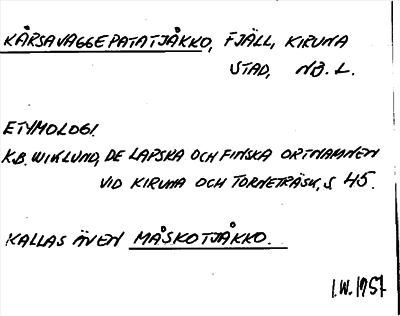 KÅRSAVAGGEPATATJÅKKO, FJÄLL, KIRUNA
STAD, NB. L.
ETYMOLOGI.
K.B. WIKLUND, DE LAPSKA OCH FINSKA ORTNAMNEN
VID KIRUNA OCH TORNETRÄSK, S 45.
KALLAS ÄVEN MÅSKOTJÅKKO.
I.W. 1957